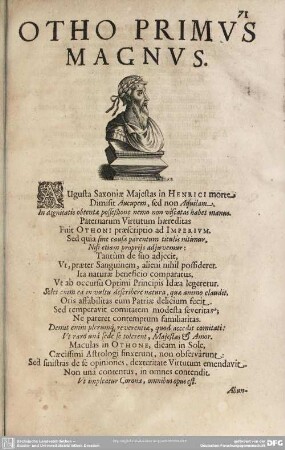 71
OTHO PRIMVS
MAGNVS.
AUgusta Saxoniæ Majestas in HENRICI morte
Dimisit Aucupem, sed non Aquilam.
In dignitatis obtentæ possessione nemo non viscatas habet manus.
Paternarum Virtutum hæreditas
Fuit OTHONI præscriptio ad IMPERIVM.
Sed quia sine causa parentum titulis nitimur,
Nisi etiam propriis adjuvemur:
Tantùm de suo adjecit,
Ut, præter Sanguinem, alieni nihil possideret.
Ita naturæ beneficio comparatus,
Ut ab occursu Optimi Principis Idæa legeretur.
Solet enim ea in vultu describere natura, quæ animo claudit.
Oris affabilitas eum Patriæ delicium fecit,
Sed temperavit comitatem modesta severitas,
Ne pareret contemptum familiaritas.
Demit enim plerumq; reverentiæ, quod accedit comitati:
Ut rarò unâ sede se tolerent, Majestas & Amor.
Maculas in OTHONE, dicam in Sole,
Cæcissimi Astrologi finxerunt, non observârunt.
Sed sinistras de se opiniones, dexteritate Virtutum emendavit.
Non unâ contentus, in omnes contendit.
Ut implicetur Corona, omnibus opus est.
Aban-